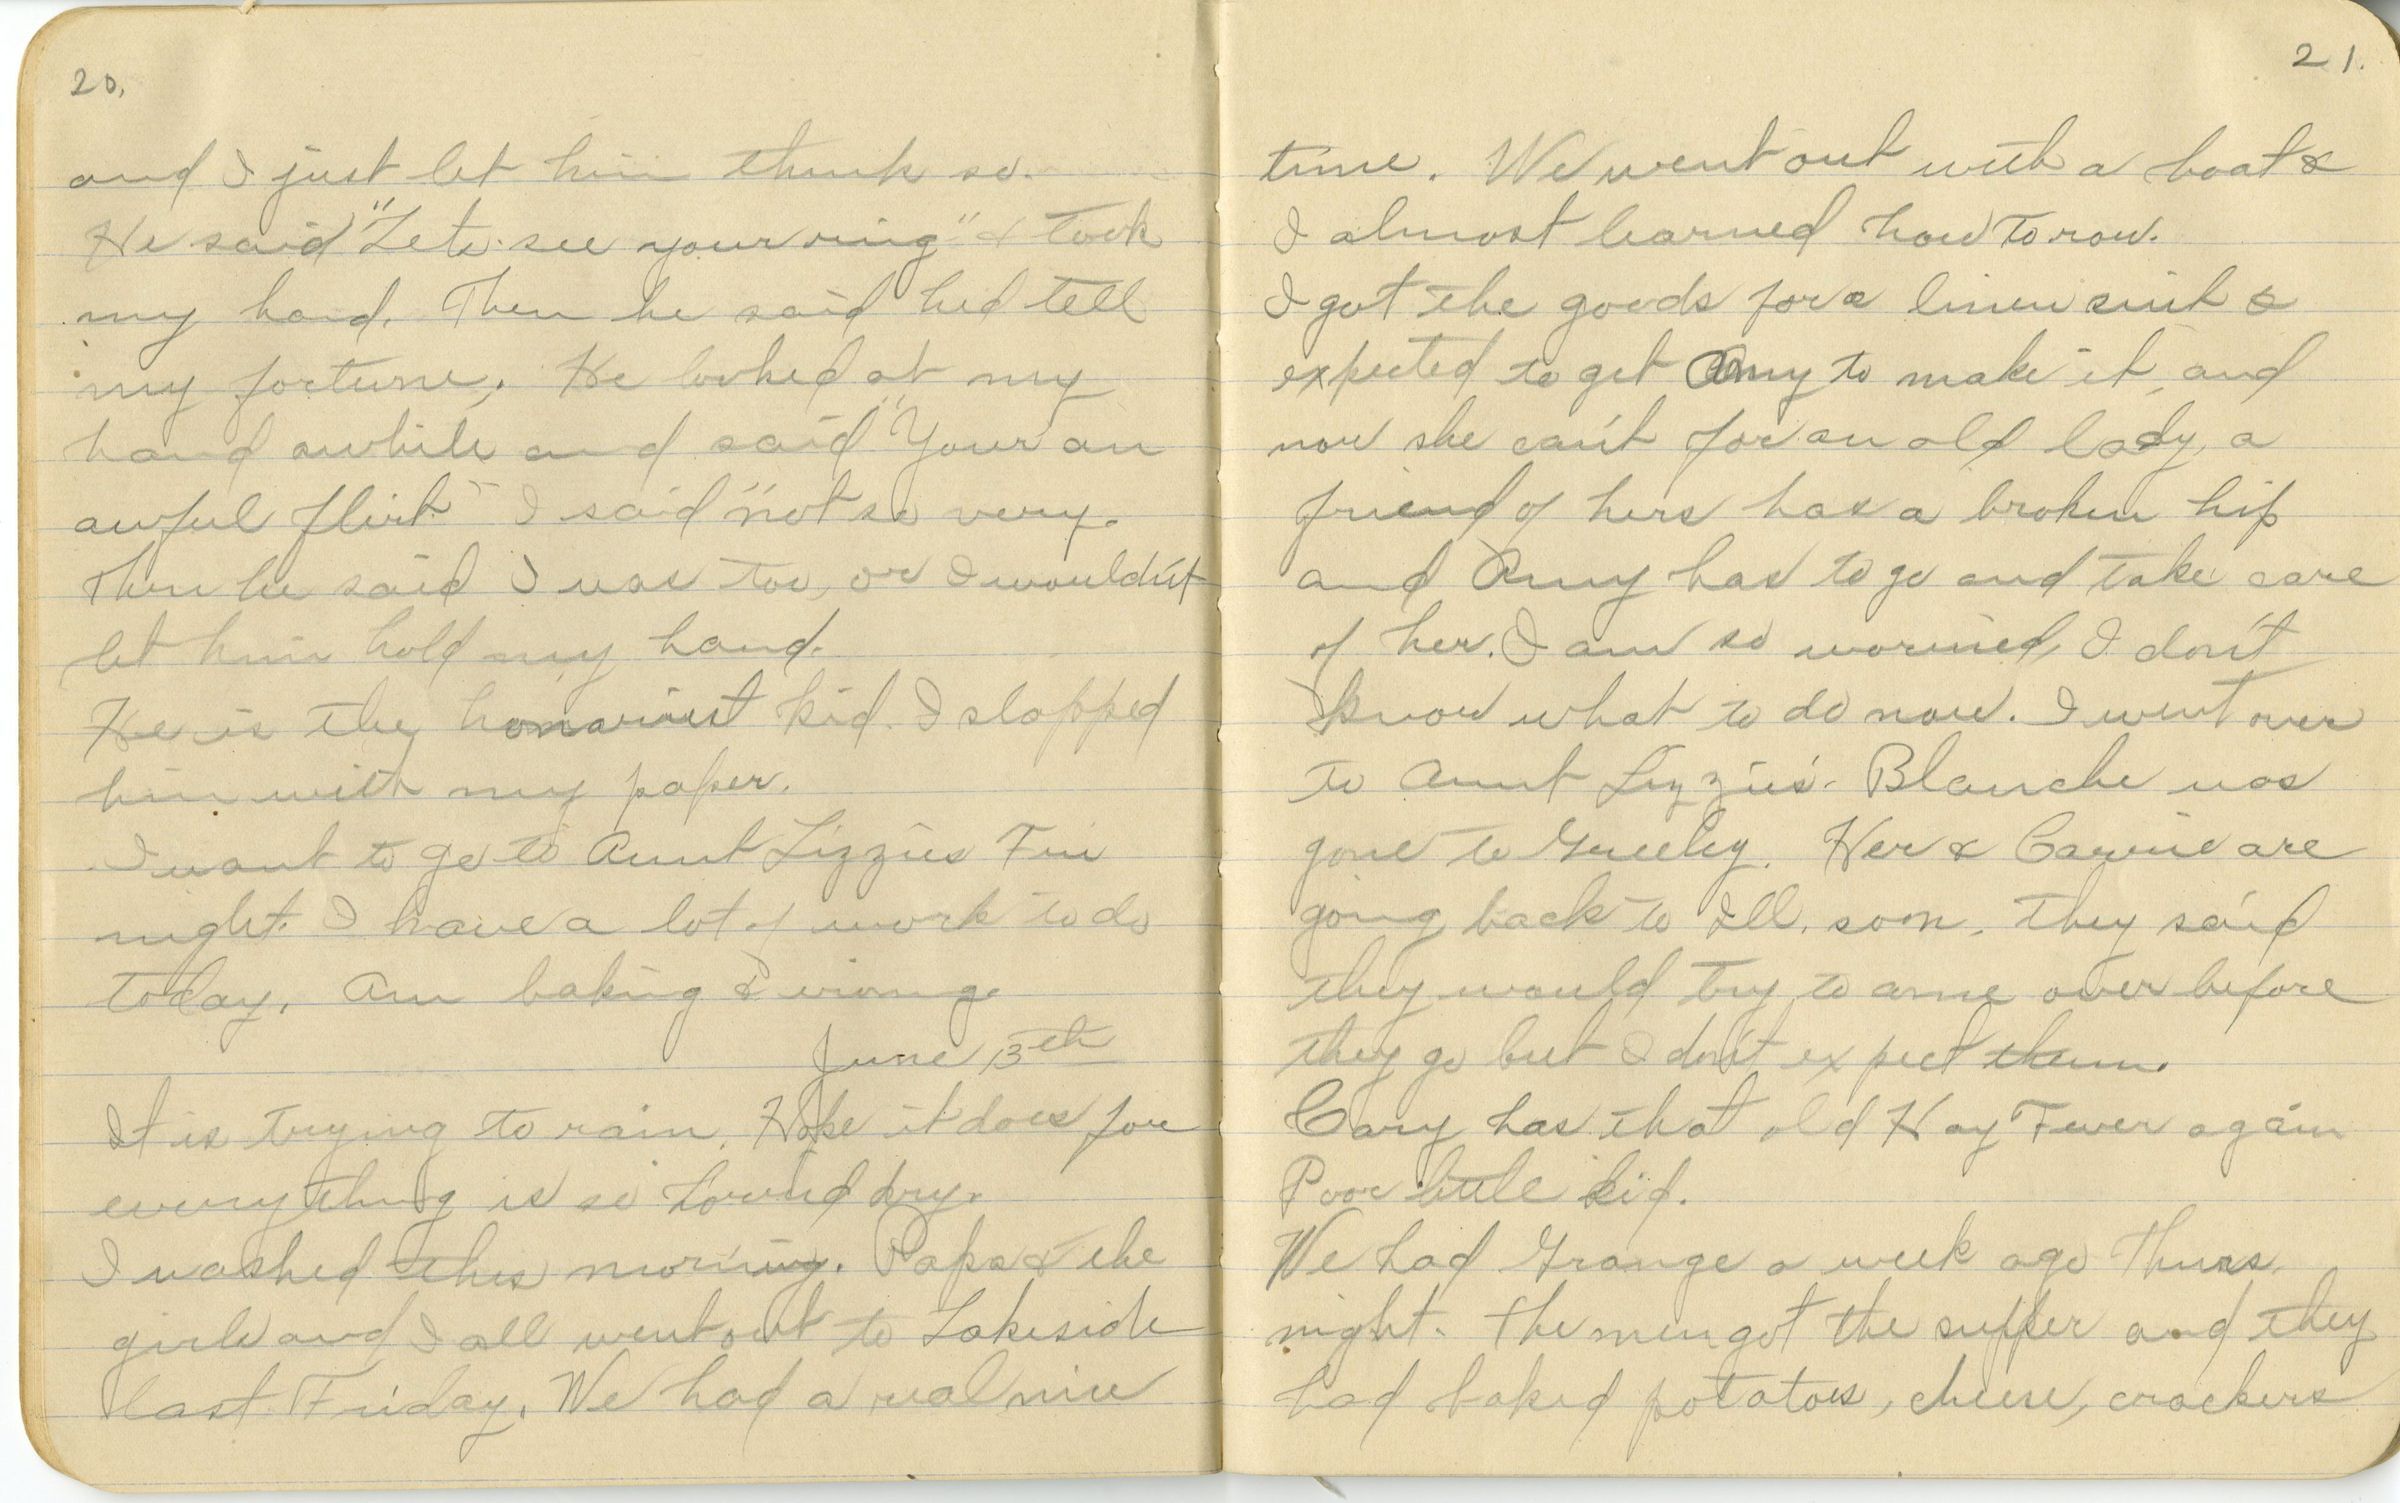 20.
and I just let him think so.
He said "Lets see your ring" & took
my hand. Then he said hed tell
my fortune. He looked at my
hand awhile and said "Your an
awful flirt" I said "not so very.
Then he said I was too, or I wouldn't
let him hold my hand.
He is the honariest kid. I slapped
him with my paper.
I want to go to Aunt Lizzies Fri
night. I have a lot of work to do
today. Am baking & irong.
June 13th
It is trying to rain. Hope it does for
everything is so horrid dry.
I washed this morning. Papa & the
girls and I all went out to Lakeside
last Friday. We had a real nice
21.
time. We went out with a boat &
I almost learned how to row.
I got the goods for a linen suit &
expected to get Amy to make it, and
now she can't for an old lady, a
friend of hers has a broken hip
and Amy has to go and take care
of her. I am so worried, I don't
know what to do now. I went over
to Aunt Lizzies. Blanche was
gone to Greeley. Her & Carrie are
going back to Ill. soon. They said
they would try to come over before
they go but I don't expect them.
Cary has that old Hay Fever again
Poor little kid.
We had Grange a week ago Thurs.
night. The men got the supper and they
had baked potatoes, cheese, crackers